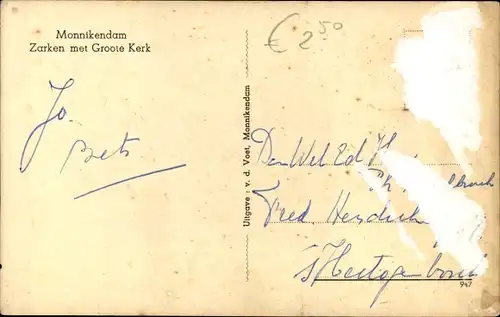 Monnikendam
Zarken met Groote Kerk
€ 2.50
Jo.
Bets
Uitgave: v. d. Voet, Monnikendam
Den Wel Ed H
Fred. Hendrik
's Hertogenbosch
947